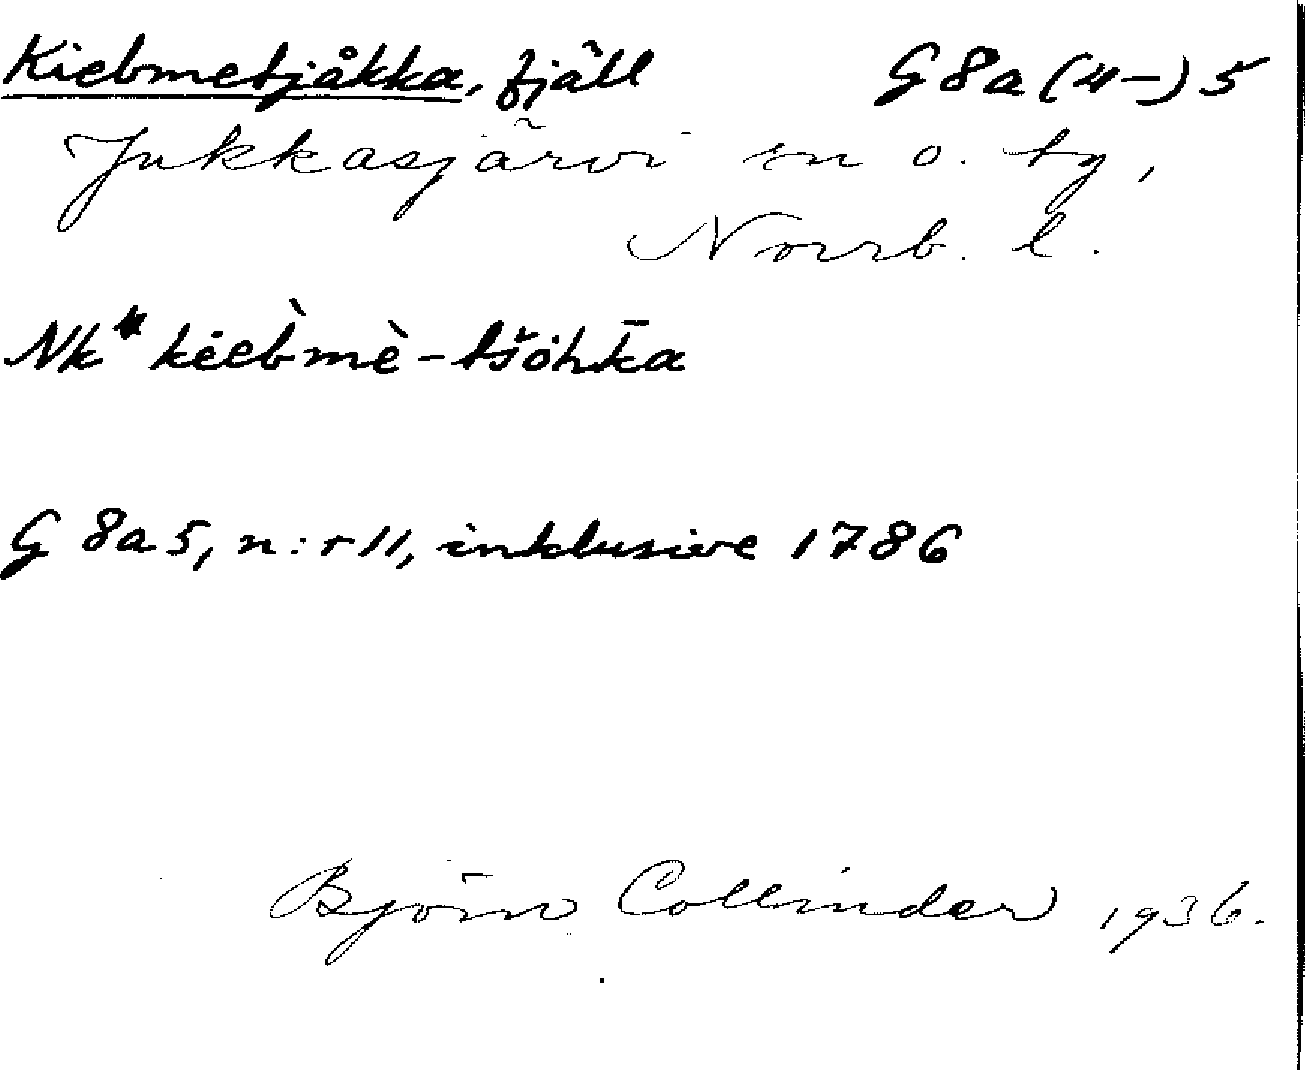 Kiebmetjåkka, fjäll G 8a (4-) 5
Jukkasjärvi sn o. tg,
Norrb. l.
Nk* kièb̀mè-tšòhk̄a
G 8a 5, n:r 11, inklusive 1786
Björn Collinder 1936.